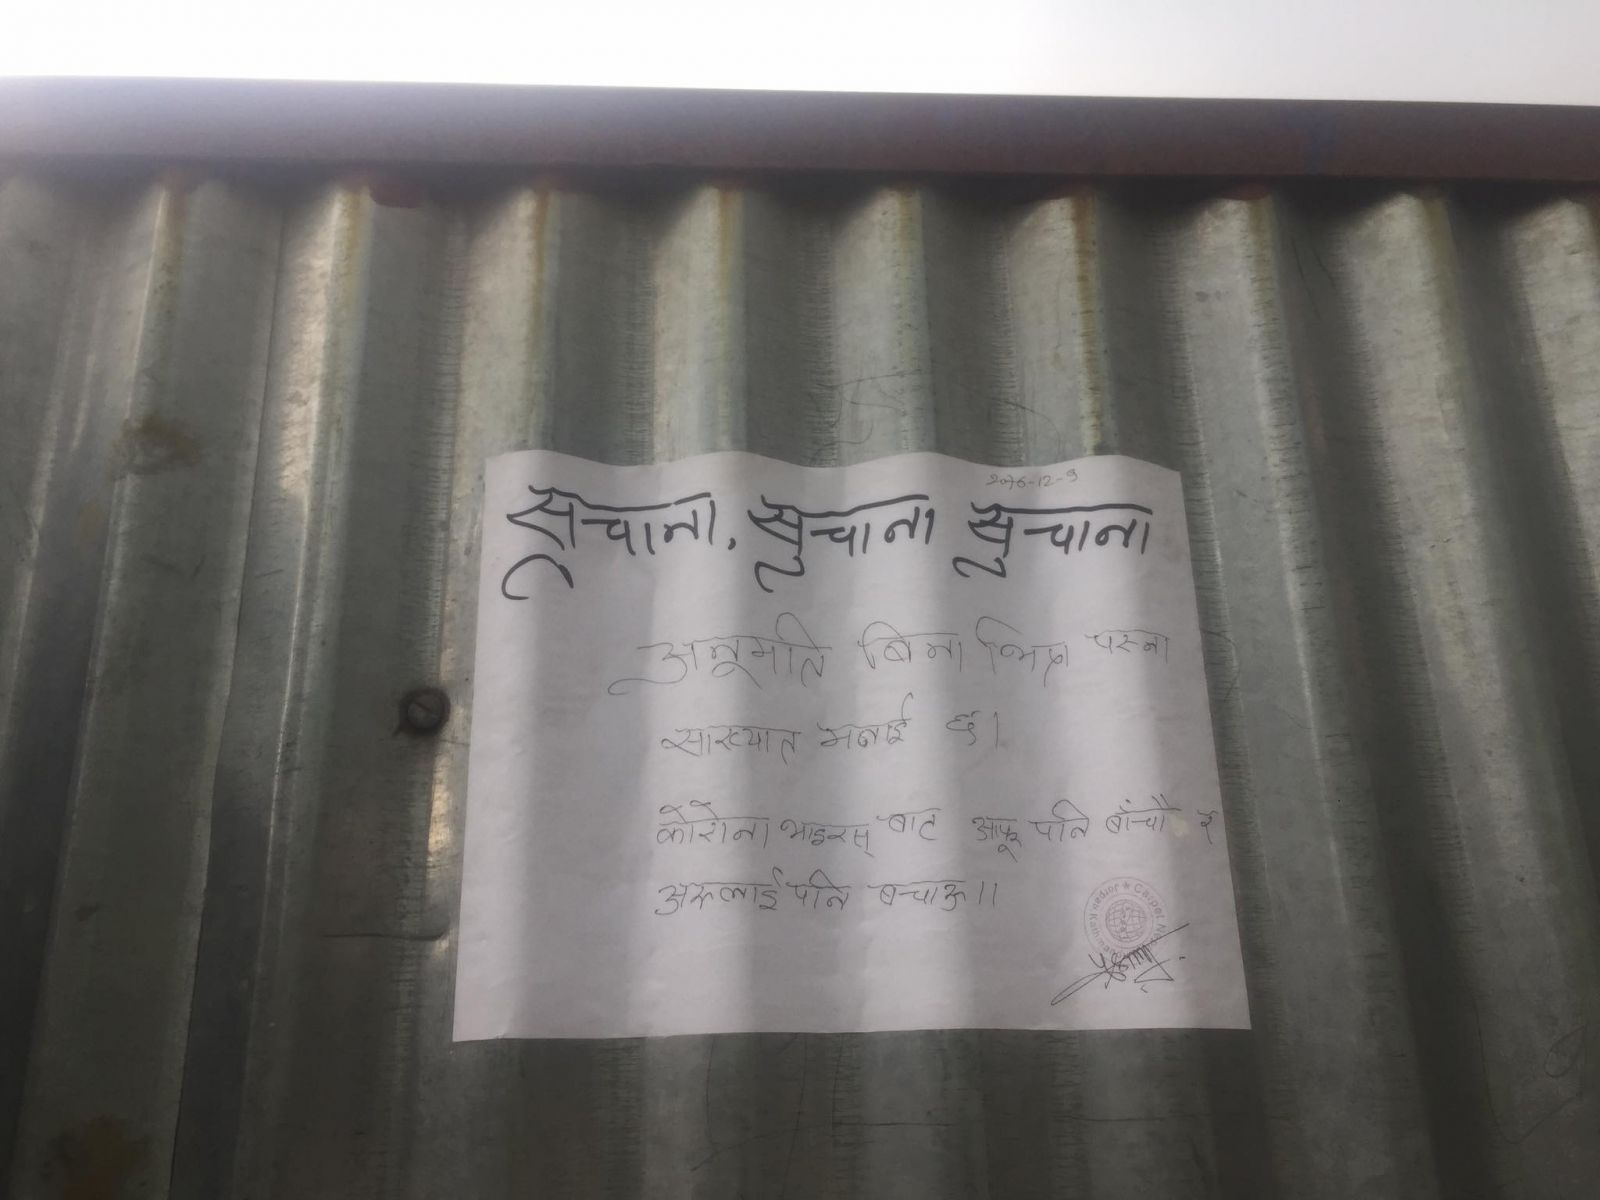 २०७६-१२-९
सूचाना, सूचाना सूचाना
अनूमति बिना भित्र पस्ना
साख्यात मनाई छ।
कोरोना भाइरस् बाट आफू पनि बाँचौ र
अरुलाई पनि बचाऊ।।
Carpet